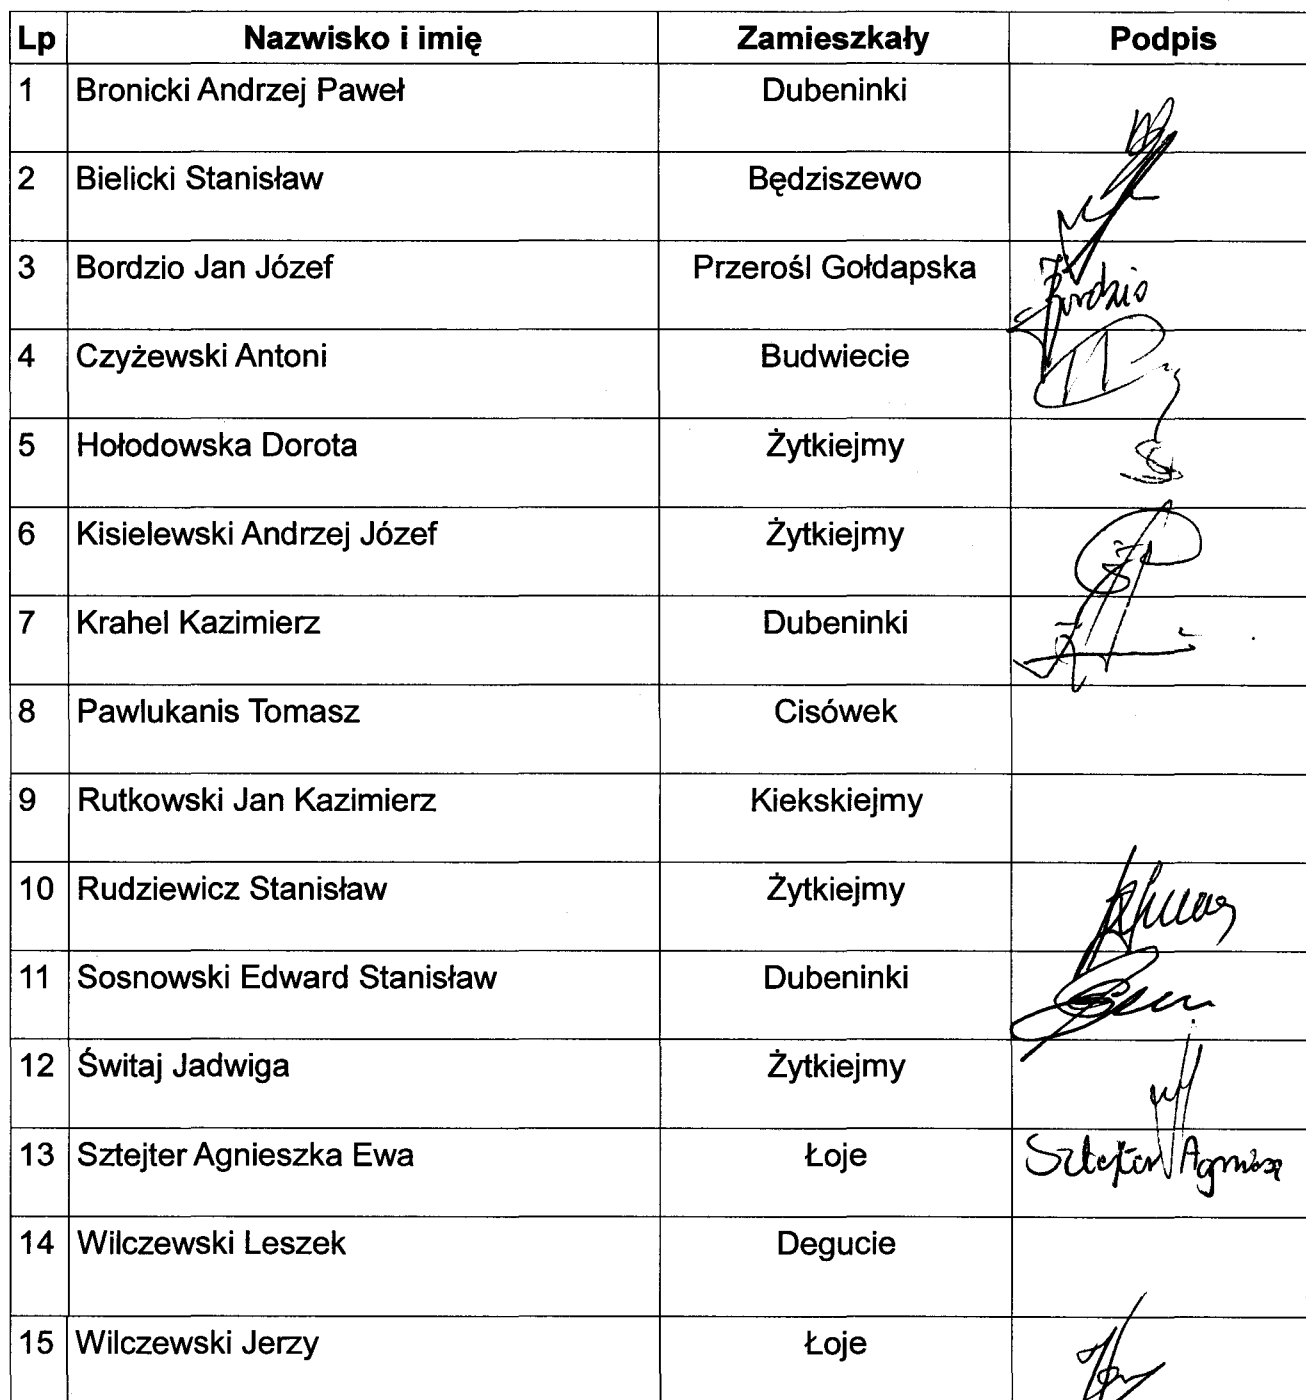 Lp Nazwisko i imię Zamieszkały Podpis
1 Bronicki Andrzej Paweł Dubeninki
2 Bielicki Stanisław Będziszewo
3 Bordzio Jan Józef Przerośl Gołdapska Bordzio
4 Czyżewski Antoni Budwiecie
5 Hołodowska Dorota Żytkiejmy
6 Kisielewski Andrzej Józef Żytkiejmy
7 Krahel Kazimierz Dubeninki
8 Pawlukanis Tomasz Cisówek
9 Rutkowski Jan Kazimierz Kiekskiejmy
10 Rudziewicz Stanisław Żytkiejmy
11 Sosnowski Edward Stanisław Dubeninki
12 Świtaj Jadwiga Żytkiejmy
13 Sztejter Agnieszka Ewa Łoje Sztejter
14 Wilczewski Leszek Degucie
15 Wilczewski Jerzy Łoje